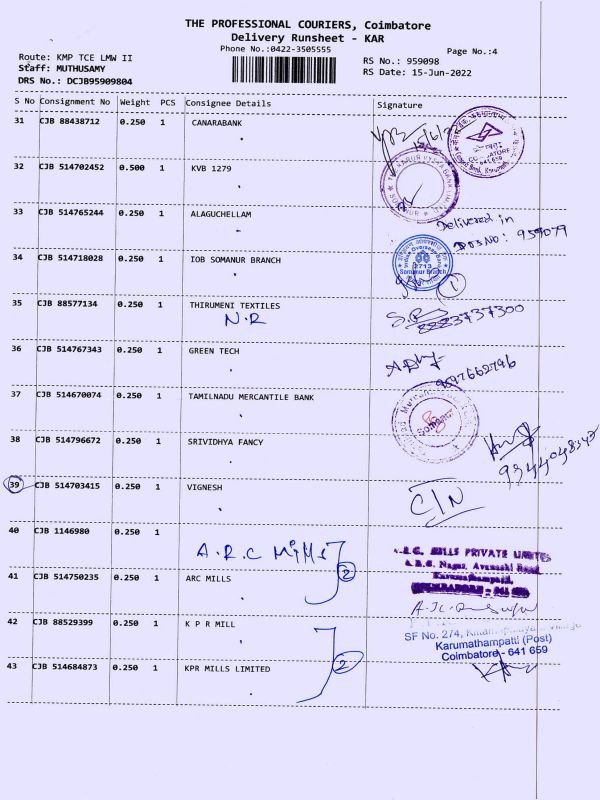 THE PROFESSIONAL COURIERS, Coimbatore
Delivery Runsheet - KAR
Phone No.:0422-3505555
Page No.:4
Route: KMP TCE LMW II
Staff: MUTHUSAMY
DRS No.: DCJB95909804
RS No.: 959098
RS Date: 15-Jun-2022
S No Consignment No Weight PCS Consignee Details Signature
31 CJB 88438712 0.250 1 CANARABANK
32 CJB 514702452 0.500 1 KVB 1279
33 CJB 514765244 0.250 1 ALAGUCHELLAM
Delivered in
DRS No: 959079
34 CJB 514718028 0.250 1 IOB SOMANUR BRANCH
Indian Overseas Bank
2713
Somanur Branch
1
35 CJB 88577134 0.250 1 THIRUMENI TEXTILES
N.R
8883737300
36 CJB 514767343 0.250 1 GREEN TECH
9597662796
37 CJB 514670074 0.250 1 TAMILNADU MERCANTILE BANK
38 CJB 514796672 0.250 1 SRIVIDHYA FANCY
39 CJB 514703415 0.250 1 VIGNESH
C/N
40 CJB 1146980 0.250 1
A.R.C Mills
2
41 CJB 514750235 0.250 1 ARC MILLS
MILLS PRIVATE LIMITED
A.R.C. Nagar, Avanashi Road,
Karumathampatti,
42 CJB 88529399 0.250 1 K P R MILL
SF No. 274,
Karumathampatti (Post)
Coimbatore - 641 659
43 CJB 514684873 0.250 1 KPR MILLS LIMITED
2